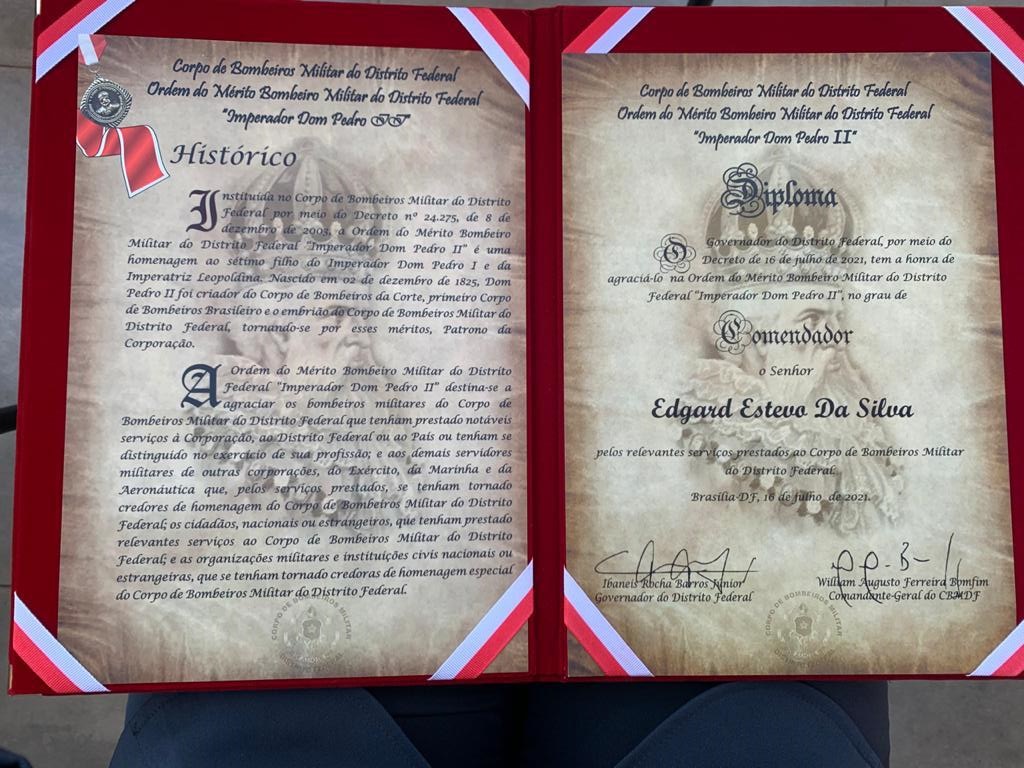 Corpo de Bombeiros Militar do Distrito Federal
Ordem do Mérito Bombeiro Militar do Distrito Federal
"Imperador Dom Pedro II"
Histórico
Instituída no Corpo de Bombeiros Militar do Distrito
Federal por meio do Decreto nº 24.275, de 8 de
dezembro de 2003, a Ordem do Mérito Bombeiro
Militar do Distrito Federal "Imperador Dom Pedro II" é uma
homenagem ao sétimo filho do Imperador Dom Pedro I e da
Imperatriz Leopoldina. Nascido em 02 de dezembro de 1825, Dom
Pedro II foi criador do Corpo de Bombeiros da Corte, primeiro Corpo
de Bombeiros Brasileiro e o embrião do Corpo de Bombeiros Militar do
Distrito Federal, tornando-se por esses méritos, Patrono da
Corporação.
A Ordem do Mérito Bombeiro Militar do Distrito
Federal "Imperador Dom Pedro II" destina-se a
agraciar os bombeiros militares do Corpo de
Bombeiros Militar do Distrito Federal que tenham prestado notáveis
serviços à Corporação, ao Distrito Federal ou ao País ou tenham se
distinguido no exercício de sua profissão; e aos demais servidores
militares de outras corporações, do Exército, da Marinha e da
Aeronáutica que, pelos serviços prestados, se tenham tornado
credores de homenagem do Corpo de Bombeiros Militar do Distrito
Federal; os cidadãos, nacionais ou estrangeiros, que tenham prestado
relevantes serviços ao Corpo de Bombeiros Militar do Distrito
Federal; e as organizações militares e instituições civis nacionais ou
estrangeiras, que se tenham tornado credoras de homenagem especial
do Corpo de Bombeiros Militar do Distrito Federal.
CORPO DE BOMBEIROS MILITAR
Corpo de Bombeiros Militar do Distrito Federal
Ordem do Mérito Bombeiro Militar do Distrito Federal
"Imperador Dom Pedro II"
Diploma
O Governador do Distrito Federal, por meio do
Decreto de 16 de julho de 2021, tem a honra de
agraciá-lo na Ordem do Mérito Bombeiro Militar do Distrito
Federal "Imperador Dom Pedro II", no grau de
Comendador
o Senhor
Edgard Estevo Da Silva
pelos relevantes serviços prestados ao Corpo de Bombeiros Militar
do Distrito Federal.
Brasília-DF, 16 de julho de 2021.
Ibaneis Rocha Barros Júnior
Governador do Distrito Federal
William Augusto Ferreira Bomfim
Comandante-Geral do CBMDF
CORPO DE BOMBEIROS MILITAR